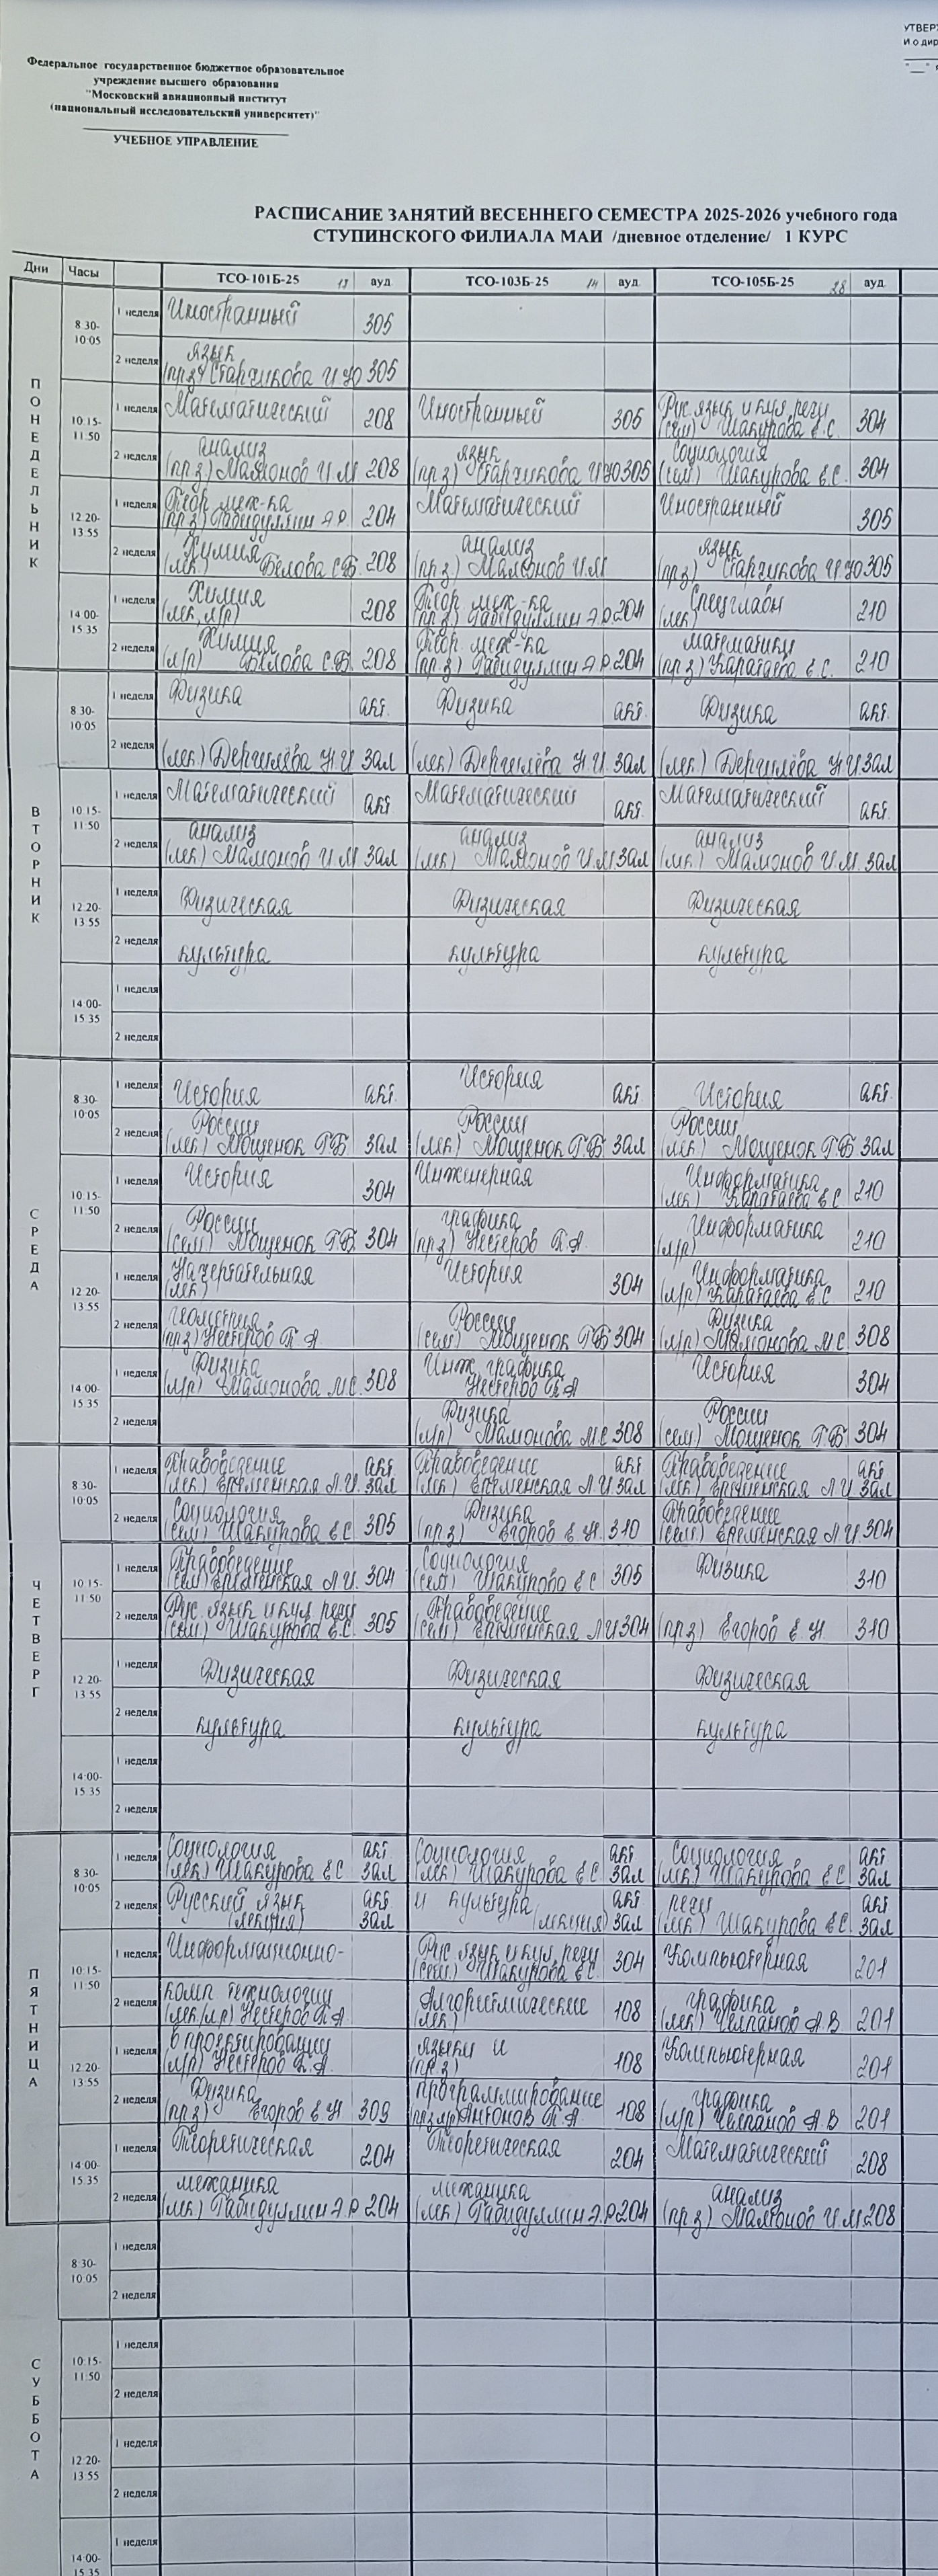 УТВЕР
И о дир
Федеральное государственное бюджетное образовательное
учреждение высшего образования
"Московский авиационный институт
(национальный исследовательский университет)"
УЧЕБНОЕ УПРАВЛЕНИЕ
РАСПИСАНИЕ ЗАНЯТИЙ ВЕСЕННЕГО СЕМЕСТРА 2025-2026 учебного года
СТУПИНСКОГО ФИЛИАЛА МАИ /дневное отделение/ 1 КУРС
Дни Часы ТСО-101Б-25 13 ауд ТСО-103Б-25 14 ауд ТСО-105Б-25 28 ауд
ПОНЕДЕЛЬНИК
8 30-10 05
1 неделя Иностранный 305
2 неделя язык (прз) Старчикова И Ю 305
10 15-11 50
1 неделя Математический 208 Иностранный 305 Рус язык и кул речи (сем) Шакурова Е.С. 304
2 неделя анализ (пр з) Мамонов И.М 208 язык (пр з) Старчикова И Ю 305 Социология (сем) Шакурова Е.С. 304
12 20-13 55
1 неделя Теор мех-ка (пр з) Габидуллин Э.Р. 204 Математический Иностранный 305
2 неделя Химия (лек) Белова С.В. 208 анализ (пр з) Мамонов И.М язык (пр з) Старчикова И Ю 305
14 00-15 35
1 неделя Химия (лек, л/р) 208 Теор мех-ка (пр з) Габидуллин Э.Р 204 Спецглавы (лек) 210
2 неделя Химия (л/р) Белова С.В. 208 Теор. мех-ка (пр з) Габидуллин Э.Р 204 математики (пр з) Каратаева Е.С. 210
ВТОРНИК
8 30-10 05
1 неделя Физика акт. Физика акт. Физика акт.
2 неделя (лек) Дергилёва Н И зал (лек) Дергилёва Н И. зал (лек) Дергилёва Н И зал
10 15-11 50
1 неделя Математический акт Математический акт. Математический акт.
2 неделя анализ (лек) Мамонов И М зал анализ (лек) Мамонов И.М зал анализ (лек) Мамонов И.М зал
12 20-13 55
1 неделя Физическая Физическая Физическая
2 неделя культура культура культура
14 00-15 35
1 неделя
2 неделя
СРЕДА
8 30-10 05
1 неделя История акт. История акт История акт.
2 неделя России (лек) Мощенок Г.Б зал России (лек) Мощенок Г.Б зал России (лек) Мощенок Г.Б зал
10 15-11 50
1 неделя История 304 Инженерная Информатика (лек) Каратаева Е С 210
2 неделя России (сем) Мощенок Г.Б. 304 графика (пр з) Нестеров П А. Информатика (л/р) 210
12 20-13 55
1 неделя Начертательная (лек) История 304 Информатика (л/р) Каратаева Е С 210
2 неделя геометрия (пр з) Нестеров П А России (сем) Мощенок Г.Б 304 Физика (л/р) Мамонова М.С 308
14 00-15 35
1 неделя Физика (л/р) Мамонова М.С. 308 Инж. графика Нестеров П А История 304
2 неделя Физика (л/р) Мамонова М.С 308 России (сем) Мощенок Г.Б 304
ЧЕТВЕРГ
8 30-10 05
1 неделя Правоведение (лек) Ерёменская Л.И. акт зал Правоведение (лек) Ерёменская Л И акт зал Правоведение (лек) Ерёменская Л И акт зал
2 неделя Социология (сем) Шакурова Е С 305 Физика (пр з) Егоров Е Н. 310 Правоведение (сем) Ерёменская Л И. 304
10 15-11 50
1 неделя Правоведение (сем) Ерёменская Л.И. 304 Социология (сем) Шакурова Е С 305 Физика 310
2 неделя Рус. язык и кул речи (сем) Шакурова Е.С. 305 Правоведение (сем) Ерёменская Л И 304 (пр з) Егоров Е.Н. 310
12 20-13 55
1 неделя Физическая Физическая Физическая
2 неделя культура культура культура
14 00-15 35
1 неделя
2 неделя
ПЯТНИЦА
8 30-10 05
1 неделя Социология (лек) Шакурова Е С акт. зал Социология (лек) Шакурова Е С акт. зал Социология (лек) Шакурова Е С акт зал
2 неделя Русский язык (лекция) акт зал и культура (лекция) акт зал речи (лек) Шакурова Е С. акт зал
10 15-11 50
1 неделя Информационно- Рус язык и кул. речи (сем) Шакурова Е С. 304 Компьютерная 201
2 неделя комп технологии (лек/л/р) Нестеров П.А Алгоритмические (лек) 108 графика (лек) Челпанов А.В 201
12 20-13 55
1 неделя в проектировании (л/р) Нестеров П.А. языки и (пр з) 108 Компьютерная 201
2 неделя Физика (пр з) Егоров Е Н 309 программирование Антонов П А 108 графика (л/р) Челпанов А.В 201
14 00-15 35
1 неделя Теоретическая 204 Теоретическая 204 Математический 208
2 неделя механика (лек) Габидуллин Э.Р 204 механика (лек) Габидуллин Э.Р 204 анализ (пр з) Мамонов И М 208
СУББОТА
8 30-10 05
1 неделя
2 неделя
10 15-11 50
1 неделя
2 неделя
12 20-13 55
1 неделя
2 неделя
14 00-15 35
1 неделя